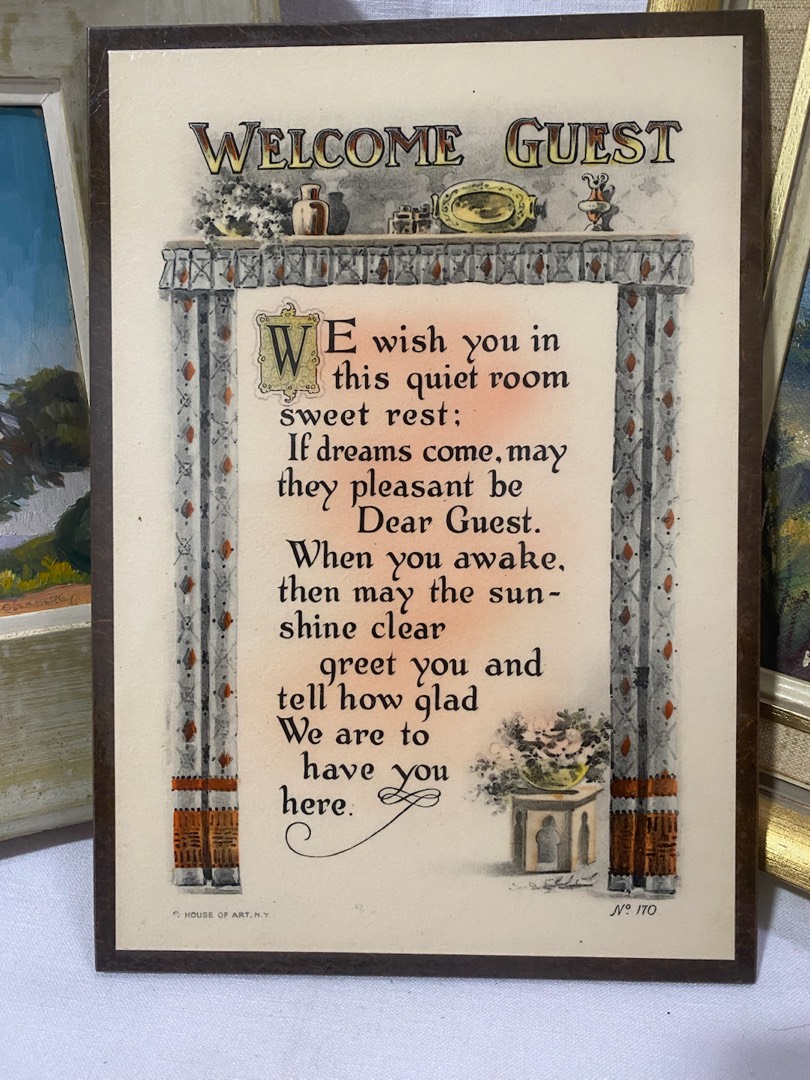 WELCOME GUEST
WE wish you in
this quiet room
sweet rest;
If dreams come, may
they pleasant be
Dear Guest.
When you awake,
then may the sun-
shine clear
greet you and
tell how glad
We are to
have you
here.
© HOUSE OF ART, N.Y.
Nº 170